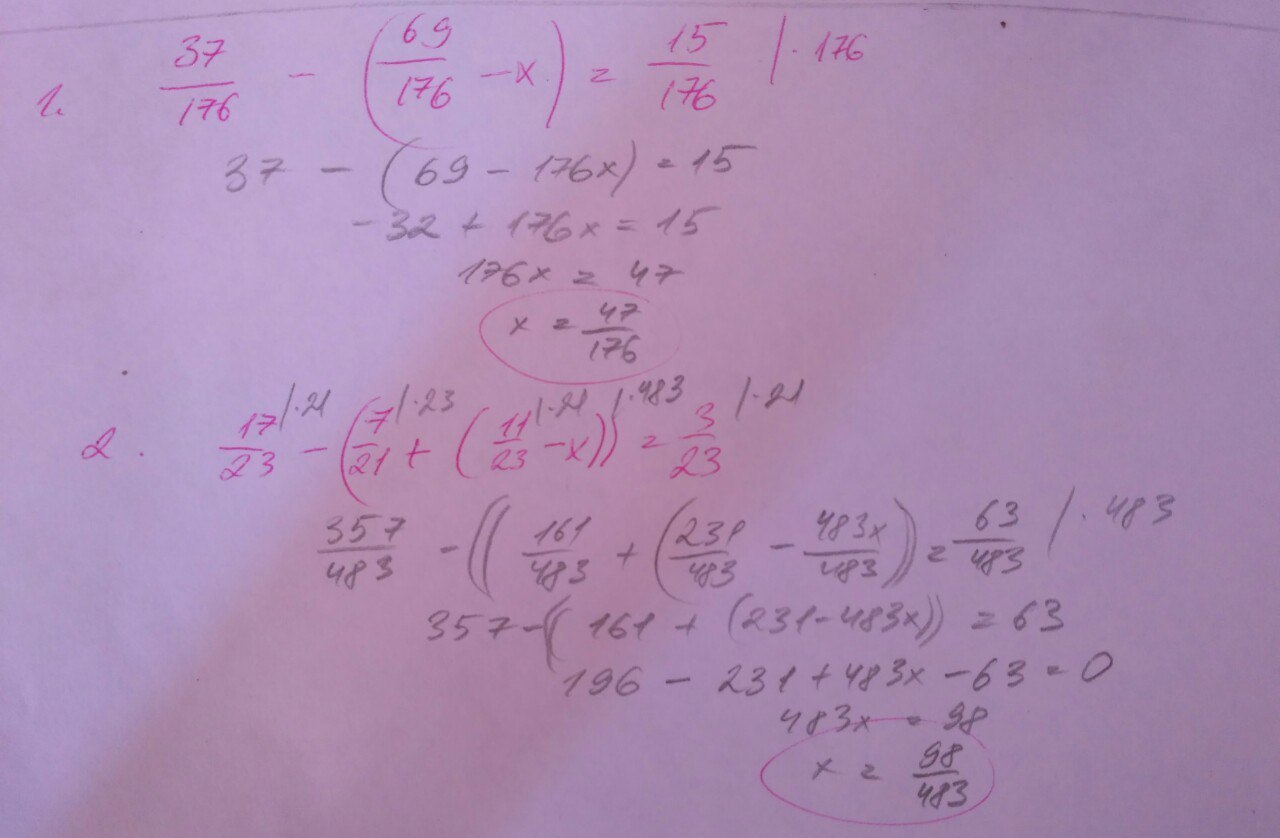 1. 37/176 - (69/176 - x) = 15/176 / · 176
37 - (69 - 176x) = 15
-32 + 176x = 15
176x = 47
x = 47/176
2. 17/23 /·21 - (7/21 /·23 + (11/23 /·21 - x)) /·483 = 3/23 /·21
357/483 - ((161/483 + (231/483 - 483x/483)) = 63/483 / · 483
357 - ((161 + (231 - 483x)) = 63
196 - 231 + 483x - 63 = 0
483x = 98
x = 98/483